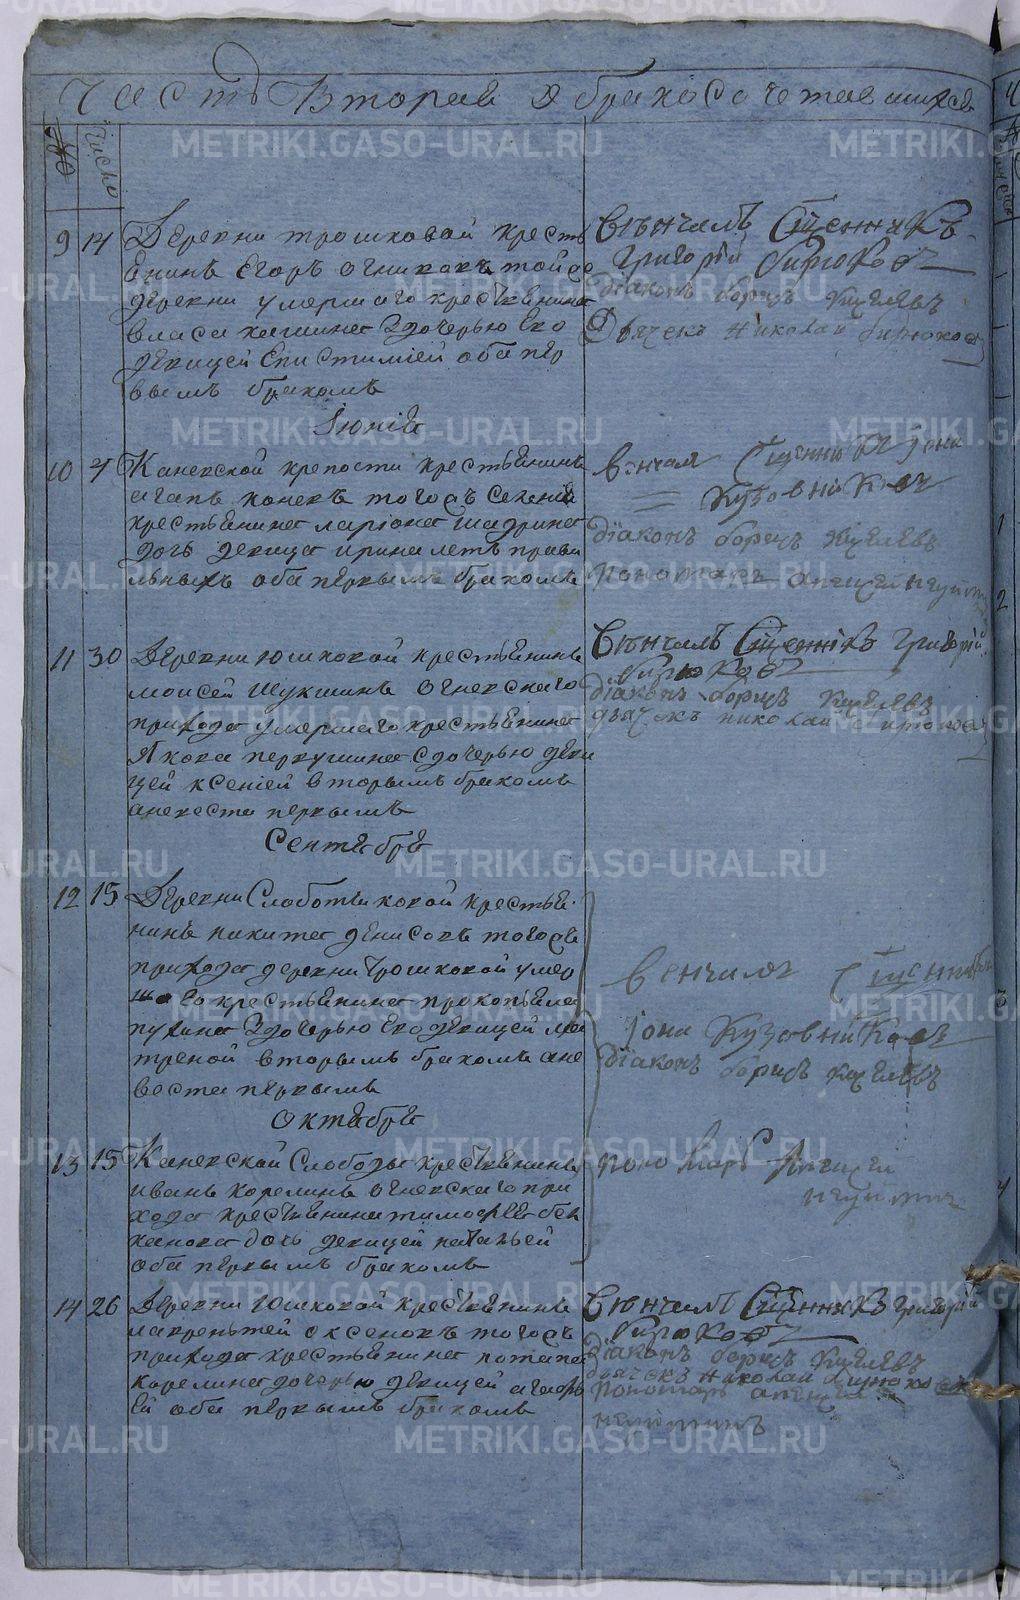 Часть Вторая О бракосочетавшихся
№ Число
9 14 Деревни трошковой кресть
янинъ Егоръ Огниковъ той же
деревни умершаго крестьянина
власа кашина здочерью Ево
девицей Епистимiей оба пер
вымъ бракомъ
Венчалъ Священникъ
григорiй бирюковъ
дiаконъ борисъ
Дьячекъ Николай бирюковъ
Iюнiя
10 7 Каневской крепости крестьянинъ
агапъ коневъ тогожъ селенiя
крестьянина ларiона шадрина
дочь девица ирина летъ прави
льныхъ оба первымъ бракомъ
венчал Священникъ Iона
Кузовниковъ
дiаконъ борисъ
пономарь алексей
11 30 Деревни юшковой крестьянинъ
моисей Шукшинъ Огневскаго
прихода умершаго крестьянина
Якова первушина сдочерью деви
цей ксенiей вторымъ бракомъ
аневеста первымъ
Венчалъ Священнiкъ григорiй
бирюковъ
дiаконъ борисъ
дьячекъ николай бирюковъ
Сентября
12 15 Деревни Слоботчиковой крестья
нинъ никита денисовъ тогожъ
прихода деревни трошковой умер
шаго крестьянина прокопья ла
пухина здочерью Ево девицей ма
треной вторымъ бракомъ ане
веста первымъ
венчалъ Священникъ
Iона Кузовниковъ
дiаконъ борисъ
Октября
13 15 Каневской Слободы крестьянинъ
иванъ корелинъ огневскаго при
хода крестьянина тимофея бек
ханова дочь девицей натальей
оба первымъ бракомъ
пономарь Алексей
14 26 Деревни юшковой крестьянинъ
лаврентей оксеновъ тогожъ
прихода крестьянина потапа
корелина дочерью девицей агафь
ей оба первымъ бракомъ
Венчалъ Священникъ григорiй
бирюковъ
дiаконъ борисъ
дьячекъ николай бирюковъ
пономарь алексей
METRIKI.GASO-URAL.RU